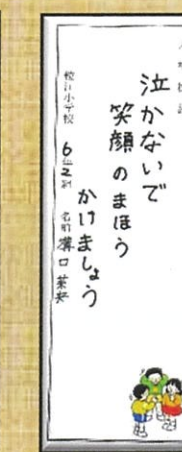 泣かないで
笑顔のまほう
かけましょう
校江小学校 6年2組 名前 溝口